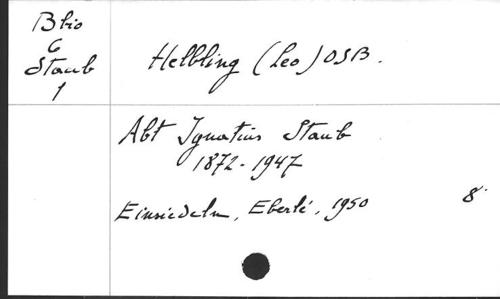 B bio
6
Staub
1
Helbling (Leo) OSB.
Abt Ignatius Staub
1872-1947
Einsiedeln, Eberlé, 1950
8°